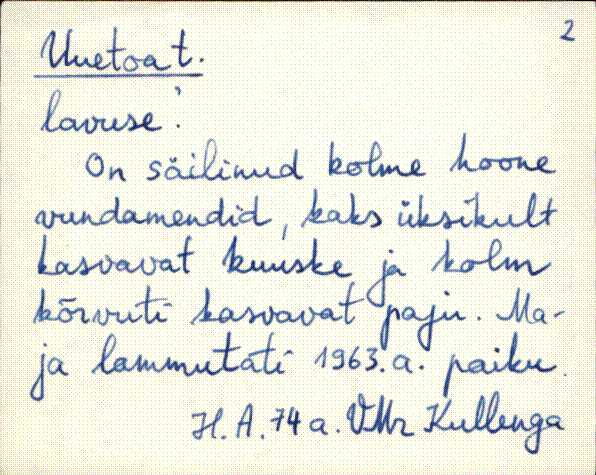 2
Uuetoa t.
lavuse?
On säilinud kolme hoone
vundamendid, kaks üksikult
kasvavat kuuske ja kolm
kõrvuti kasvavat paju. Ma-
ja lammutati 1963.a. paiku.
H.A. 74 a. VMr Kullenga